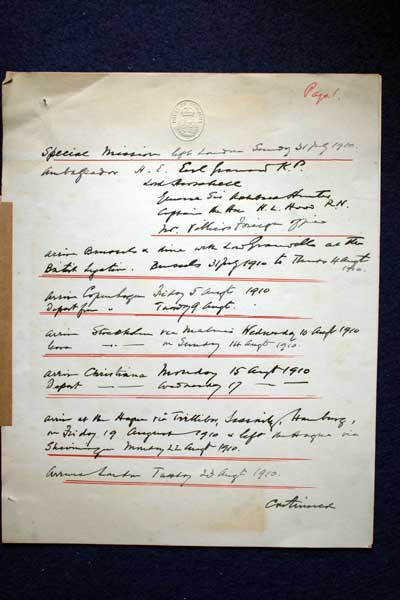 Page 1.
Special Mission left London Sunday 31 July 1910.
Ambassador H. E. Earl Granard K.P.
General Sir Archibald Hunter
Captain the Hon H. L. Hood R.N.
Mr. Villiers Foreign Office
arrive Brussels & dine with at the
British Legation. Brussels 31 July 1910 to Thurs 4 Augt
1910.
arrive Copenhagen Friday 5 Augt 1910
Depart from " Tuesday 9 Augt.
arrive Stockholm via Malmo Wednesday 10 Augt 1910
on Sunday 14 Augt 1910.
arrive Christiana Monday 15 Augt 1910
Depart Wednesday 17
arrive at the Hague via Hamburg,
on Friday 19 August 1910 & left the Hague via
Monday 22 Augt 1910.
Arrive London Tuesday 23 Augt 1910.
Continued